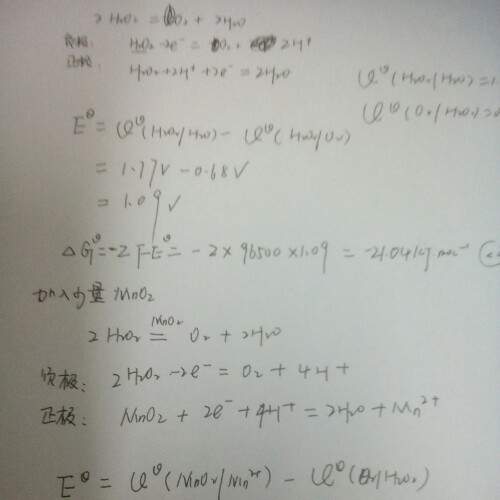 2H₂O₂ = O₂ + 2H₂O
负极: H₂O₂ - 2e⁻ = O₂ + 2H⁺
正极: H₂O₂ + 2H⁺ + 2e⁻ = 2H₂O
φ^θ(H₂O₂/H₂O) = 1.
φ^θ(O₂/H₂O₂) =
E^θ = φ^θ(H₂O₂/H₂O) - φ^θ(H₂O₂/O₂)
= 1.77V - 0.68V
= 1.09V
ΔG^θ = -2FE^θ = -2×96500×1.09 = -21.04kJ·mol⁻¹
加入少量MnO₂
2H₂O₂ =MnO₂= O₂ + 2H₂O
负极: 2H₂O₂ - 2e⁻ = O₂ + 4H⁺
正极: MnO₂ + 2e⁻ + 4H⁺ = 2H₂O + Mn²⁺
E^θ = φ^θ(MnO₂/Mn²⁺) - φ^θ(O₂/H₂O₂)